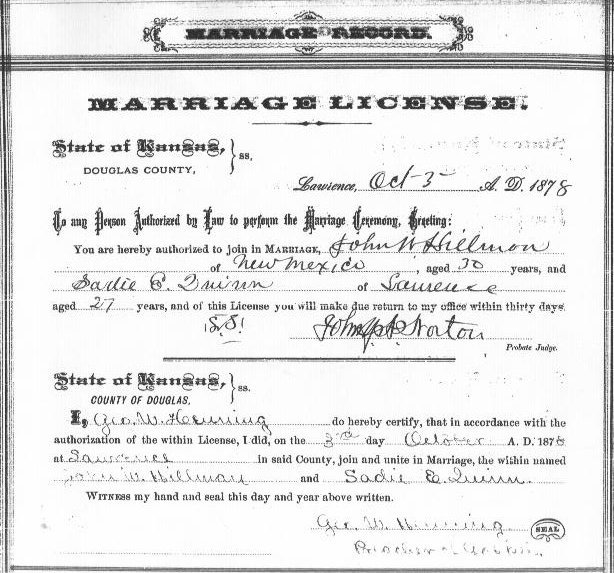 MARRIAGE RECORD.
MARRIAGE LICENSE.
State of Kansas, } ss.
DOUGLAS COUNTY,
Lawrence, Oct 3 A. D. 1878
To any Person Authorized by Law to perform the Marriage Ceremony, Greeting:
You are hereby authorized to join in MARRIAGE, John W Hillmon
of New Mexico, aged 30 years, and
Sadie E. Quinn of Lawrence
aged 27 years, and of this License you will make due return to my office within thirty days.
John Norton
Probate Judge.
State of Kansas, } ss.
COUNTY OF DOUGLAS,
I, Geo. W. Henning do hereby certify, that in accordance with the
authorization of the within License, I did, on the 3rd day October A. D. 1878
at Lawrence in said County, join and unite in Marriage, the within named
John W. Hillman and Sadie E. Quinn.
WITNESS my hand and seal this day and year above written.
Geo. W. Henning
SEAL